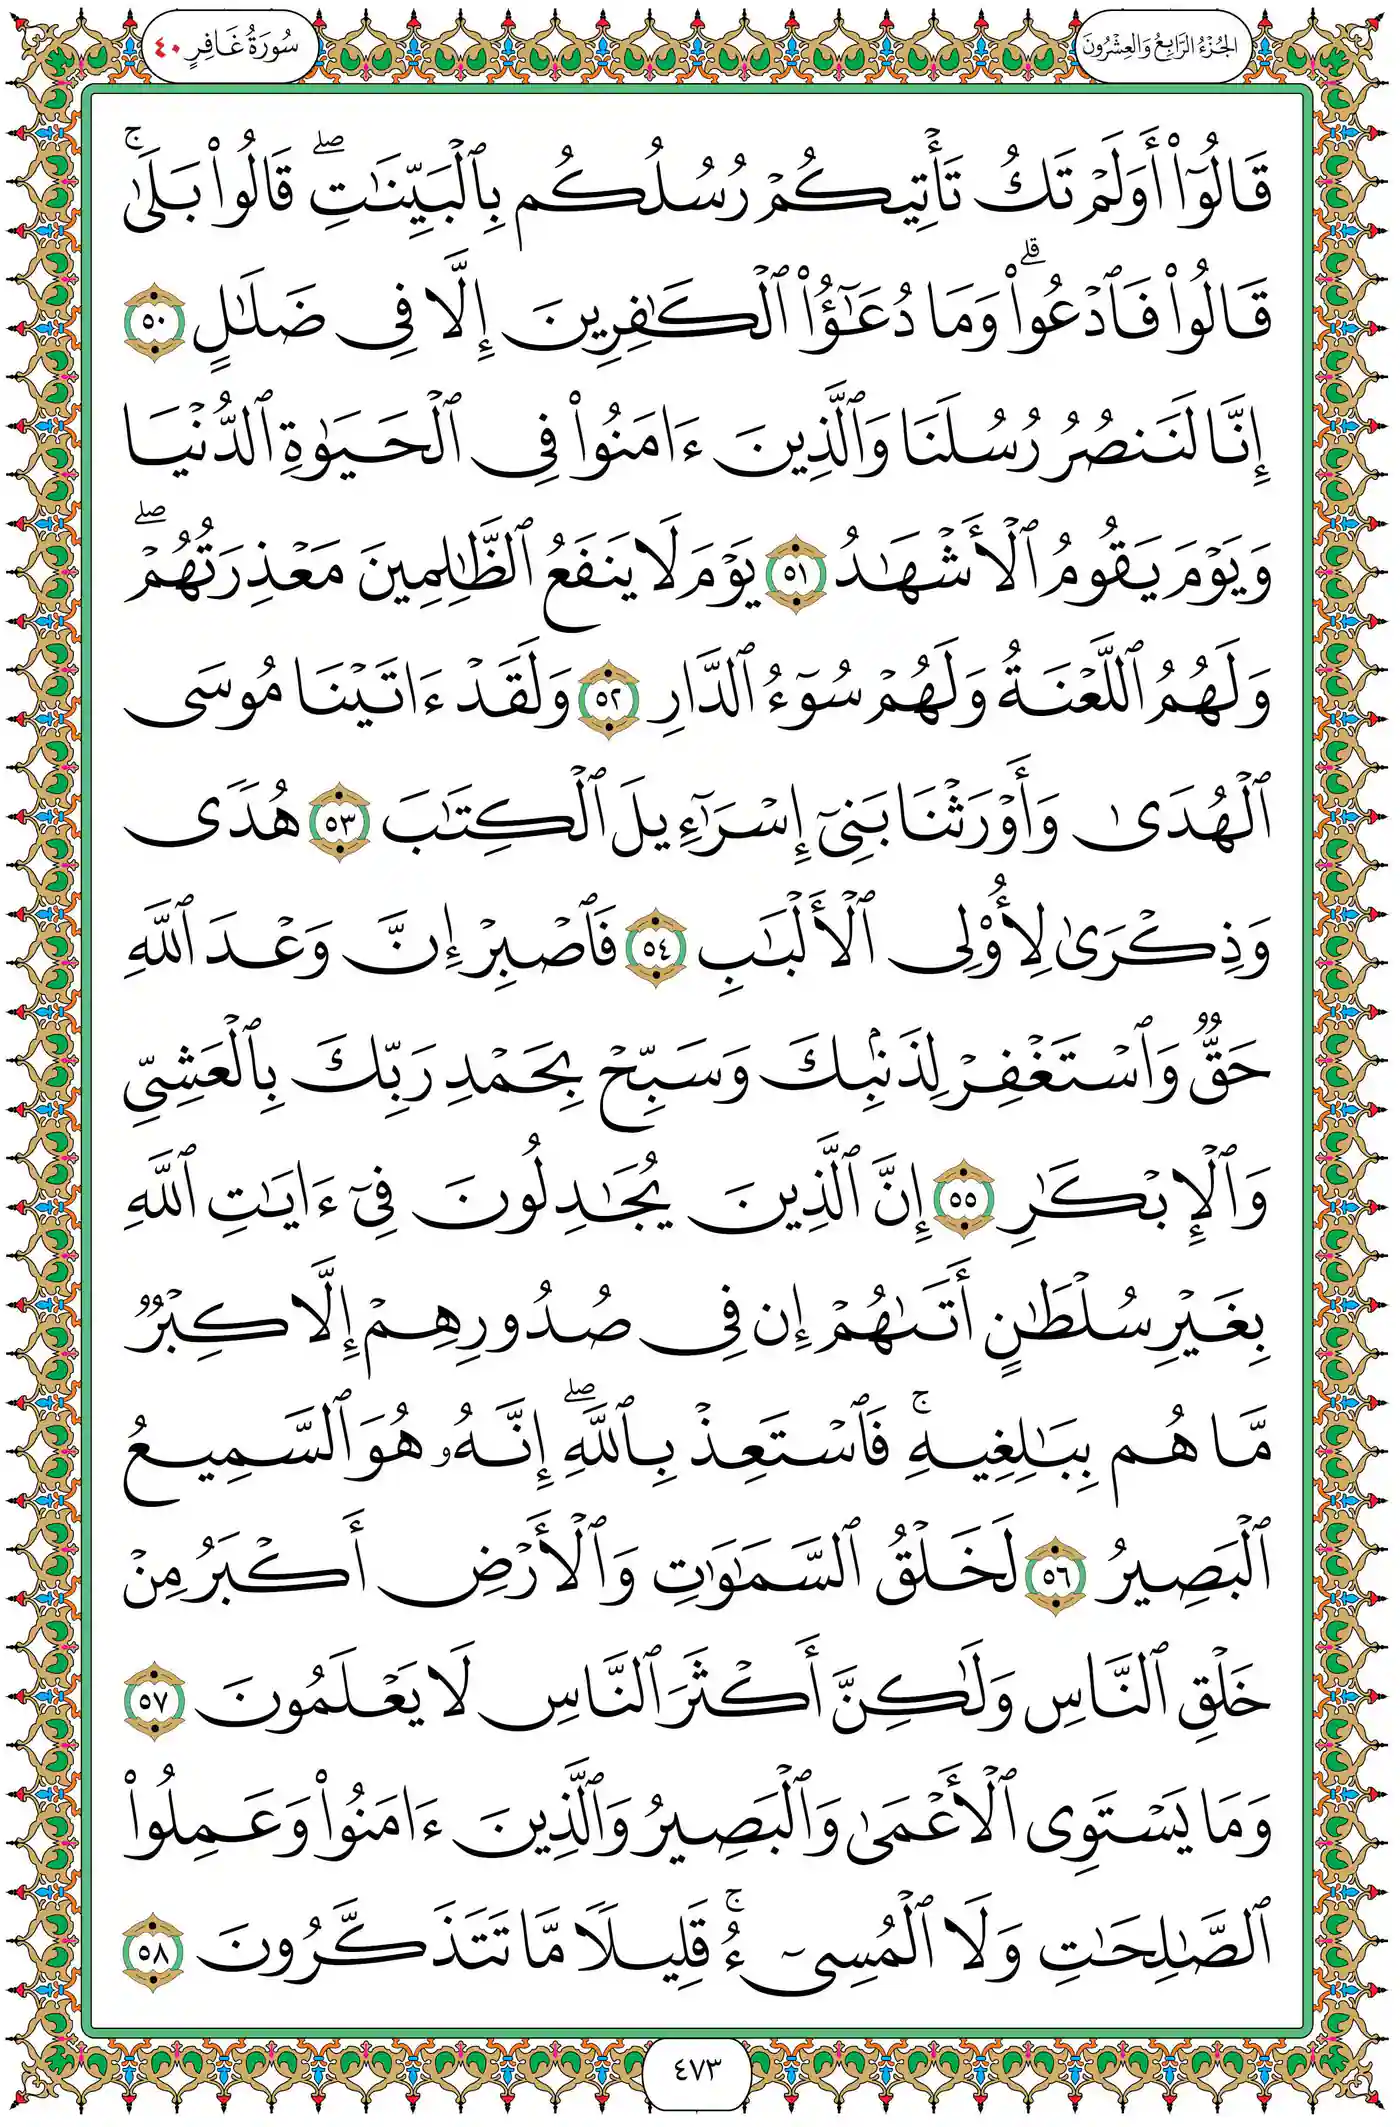 الجُزْءُ الرَّابِعُ وَالعِشْرُونَ
سُورَةُ غَافِرٍ ٤٠
قَالُوٓا۟ أَوَلَمْ تَكُ تَأْتِيكُمْ رُسُلُكُم بِٱلْبَيِّنَـٰتِ ۖ قَالُوا۟ بَلَىٰ ۚ
قَالُوا۟ فَٱدْعُوا۟ ۗ وَمَا دُعَـٰٓؤُا۟ ٱلْكَـٰفِرِينَ إِلَّا فِى ضَلَـٰلٍ ٥٠
إِنَّا لَنَنصُرُ رُسُلَنَا وَٱلَّذِينَ ءَامَنُوا۟ فِى ٱلْحَيَوٰةِ ٱلدُّنْيَا
وَيَوْمَ يَقُومُ ٱلْأَشْهَـٰدُ ٥١ يَوْمَ لَا يَنفَعُ ٱلظَّـٰلِمِينَ مَعْذِرَتُهُمْ ۖ
وَلَهُمُ ٱللَّعْنَةُ وَلَهُمْ سُوٓءُ ٱلدَّارِ ٥٢ وَلَقَدْ ءَاتَيْنَا مُوسَى
ٱلْهُدَىٰ وَأَوْرَثْنَا بَنِىٓ إِسْرَـٰٓءِيلَ ٱلْكِتَـٰبَ ٥٣ هُدًى
وَذِكْرَىٰ لِأُو۟لِى ٱلْأَلْبَـٰبِ ٥٤ فَٱصْبِرْ إِنَّ وَعْدَ ٱللَّهِ
حَقٌّ وَٱسْتَغْفِرْ لِذَنۢبِكَ وَسَبِّحْ بِحَمْدِ رَبِّكَ بِٱلْعَشِىِّ
وَٱلْإِبْكَـٰرِ ٥٥ إِنَّ ٱلَّذِينَ يُجَـٰدِلُونَ فِىٓ ءَايَـٰتِ ٱللَّهِ
بِغَيْرِ سُلْطَـٰنٍ أَتَىٰهُمْ إِن فِى صُدُورِهِمْ إِلَّا كِبْرٌ
مَّا هُم بِبَـٰلِغِيهِ ۚ فَٱسْتَعِذْ بِٱللَّهِ ۖ إِنَّهُۥ هُوَ ٱلسَّمِيعُ
ٱلْبَصِيرُ ٥٦ لَخَلْقُ ٱلسَّمَـٰوَٰتِ وَٱلْأَرْضِ أَكْبَرُ مِنْ
خَلْقِ ٱلنَّاسِ وَلَـٰكِنَّ أَكْثَرَ ٱلنَّاسِ لَا يَعْلَمُونَ ٥٧
وَمَا يَسْتَوِى ٱلْأَعْمَىٰ وَٱلْبَصِيرُ وَٱلَّذِينَ ءَامَنُوا۟ وَعَمِلُوا۟
ٱلصَّـٰلِحَـٰتِ وَلَا ٱلْمُسِىٓءُ ۚ قَلِيلًا مَّا تَتَذَكَّرُونَ ٥٨
٤٧٣